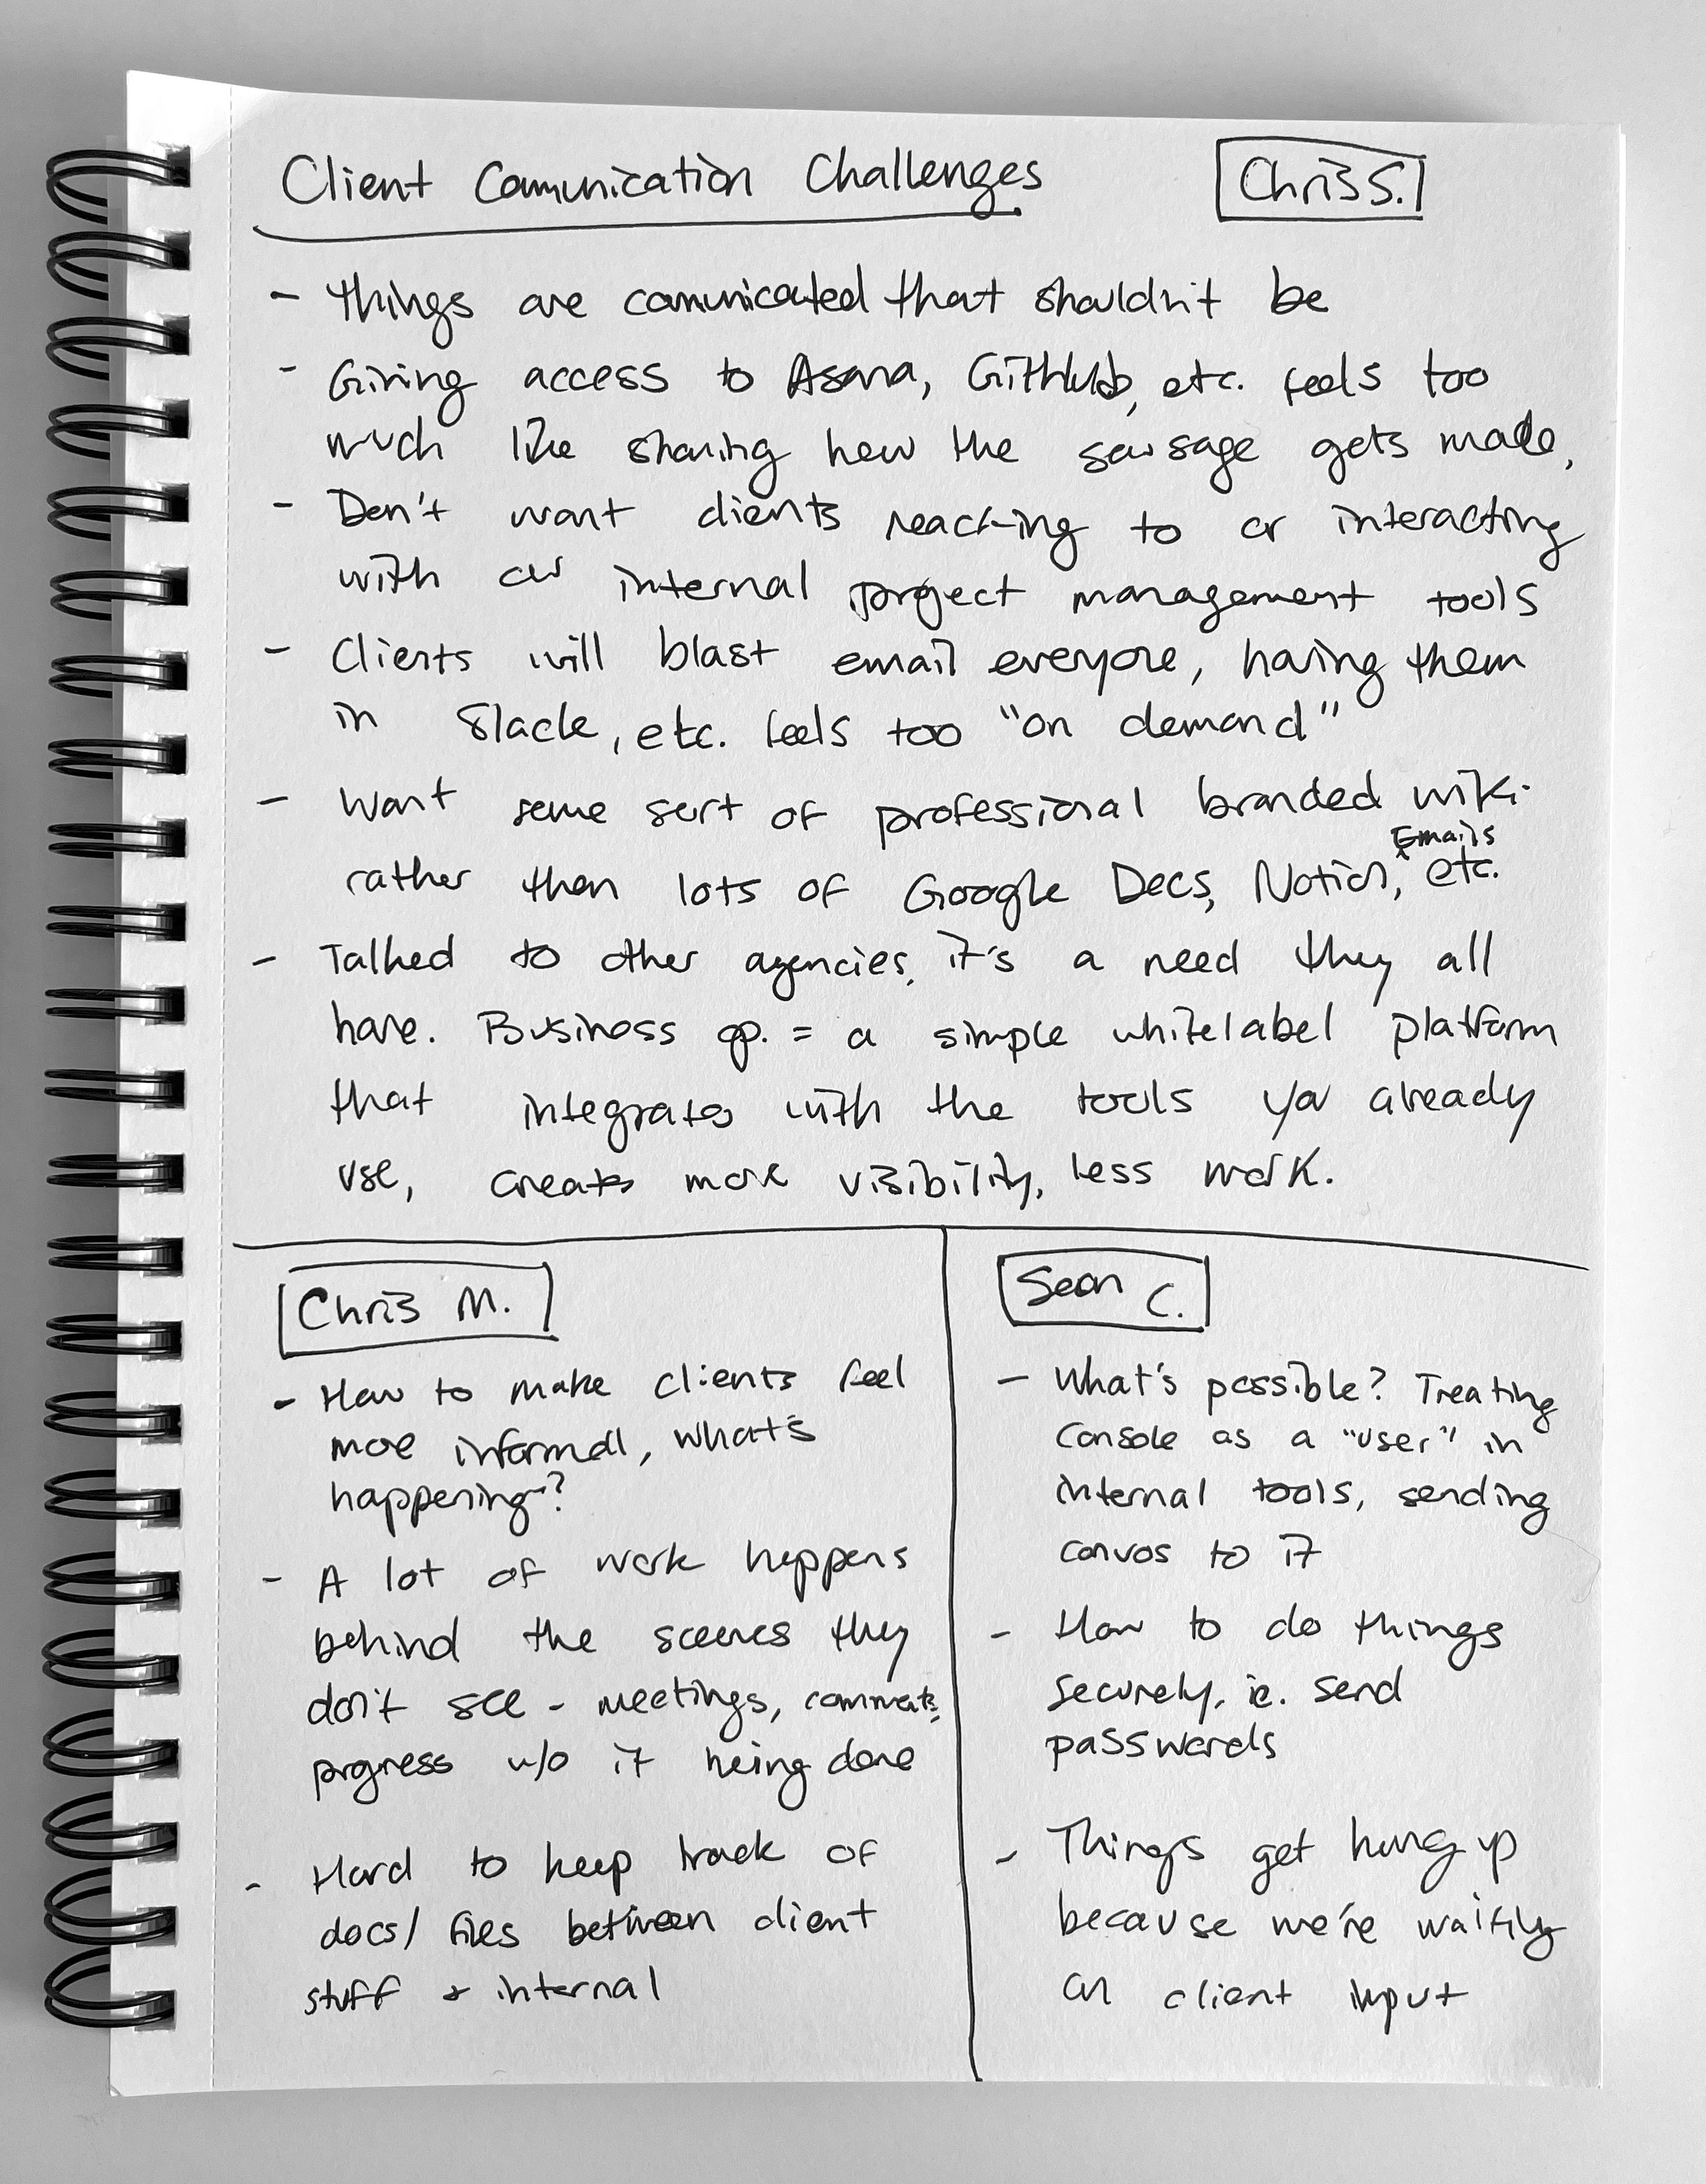 Client Comunication Challenges
Chris S.
- things are comunicated that shouldn't be
- Giving access to Asana, GitHub, etc. feels too
much like sharing how the sausage gets made,
- Don't want clients reacting to or interacting
with our internal project management tools
- Clients will blast email everyone, having them
in Slack, etc. feels too "on demand"
- Want some sort of professional branded wiki
rather then lots of Google Docs, Notion, Emails etc.
- Talked to other agencies, it's a need they all
have. Business op. = a simple whitelabel platform
that integrates with the tools you already
use, creates more visibility, less work.
Chris M.
- How to make clients feel
more informed, what's
happening?
- A lot of work happens
behind the scenes they
don't see - meetings, comments,
progress w/o it being done
- Hard to keep track of
docs/files between client
stuff & internal
Sean C.
- What's possible? Treating
Console as a "user" in
internal tools, sending
convos to it
- How to do things
securely, ie. send
passwords
- Things get hung up
because we're waiting
on client input